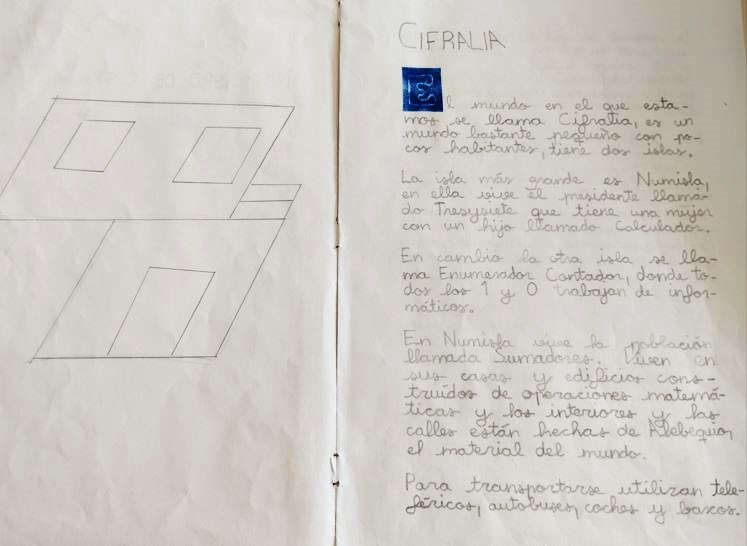 CIFRALIA
El mundo en el que esta-
mos se llama Cifralia, es un
mundo bastante pequeño con po-
cos habitantes, tiene dos islas.
La isla más grande es Numisla,
en ella vive el presidente llama-
do Tresysiete que tiene una mujer
con un hijo llamado Calculador.
En cambio la otra isla se lla-
ma Enumerador Contador, donde to-
dos los 1 y 0 trabajan de infor-
máticos.
En Numisla vive la población
llamada Sumadores. Viven en
sus casas y edificios cons-
truídos de operaciones matemá-
ticas y los interiores y las
calles están hechas de Alebequios,
el material del mundo.
Para transportarse utilizan tele-
féricos, autobuses, coches y barcos.